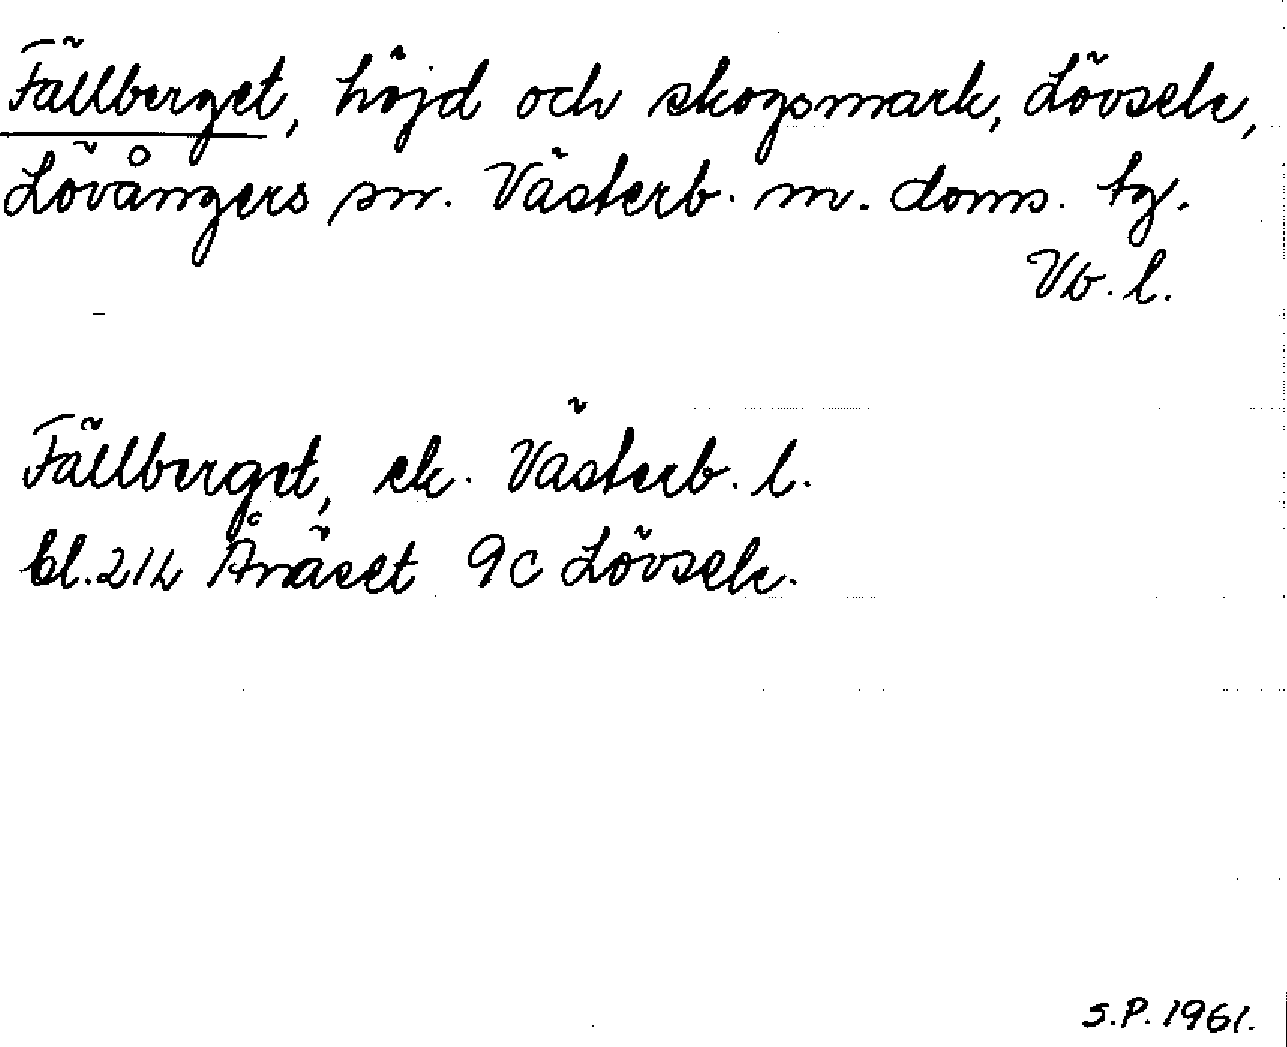 Fällberget, höjd och skogsmark, Lövsele,
Lövångers sn. Västerb. m. doms. tg.
Vb. l.
Fällberget, ek. Västerb. l.
bl. 21L Ånäset 9c Lövsele.
S.P. 1961.